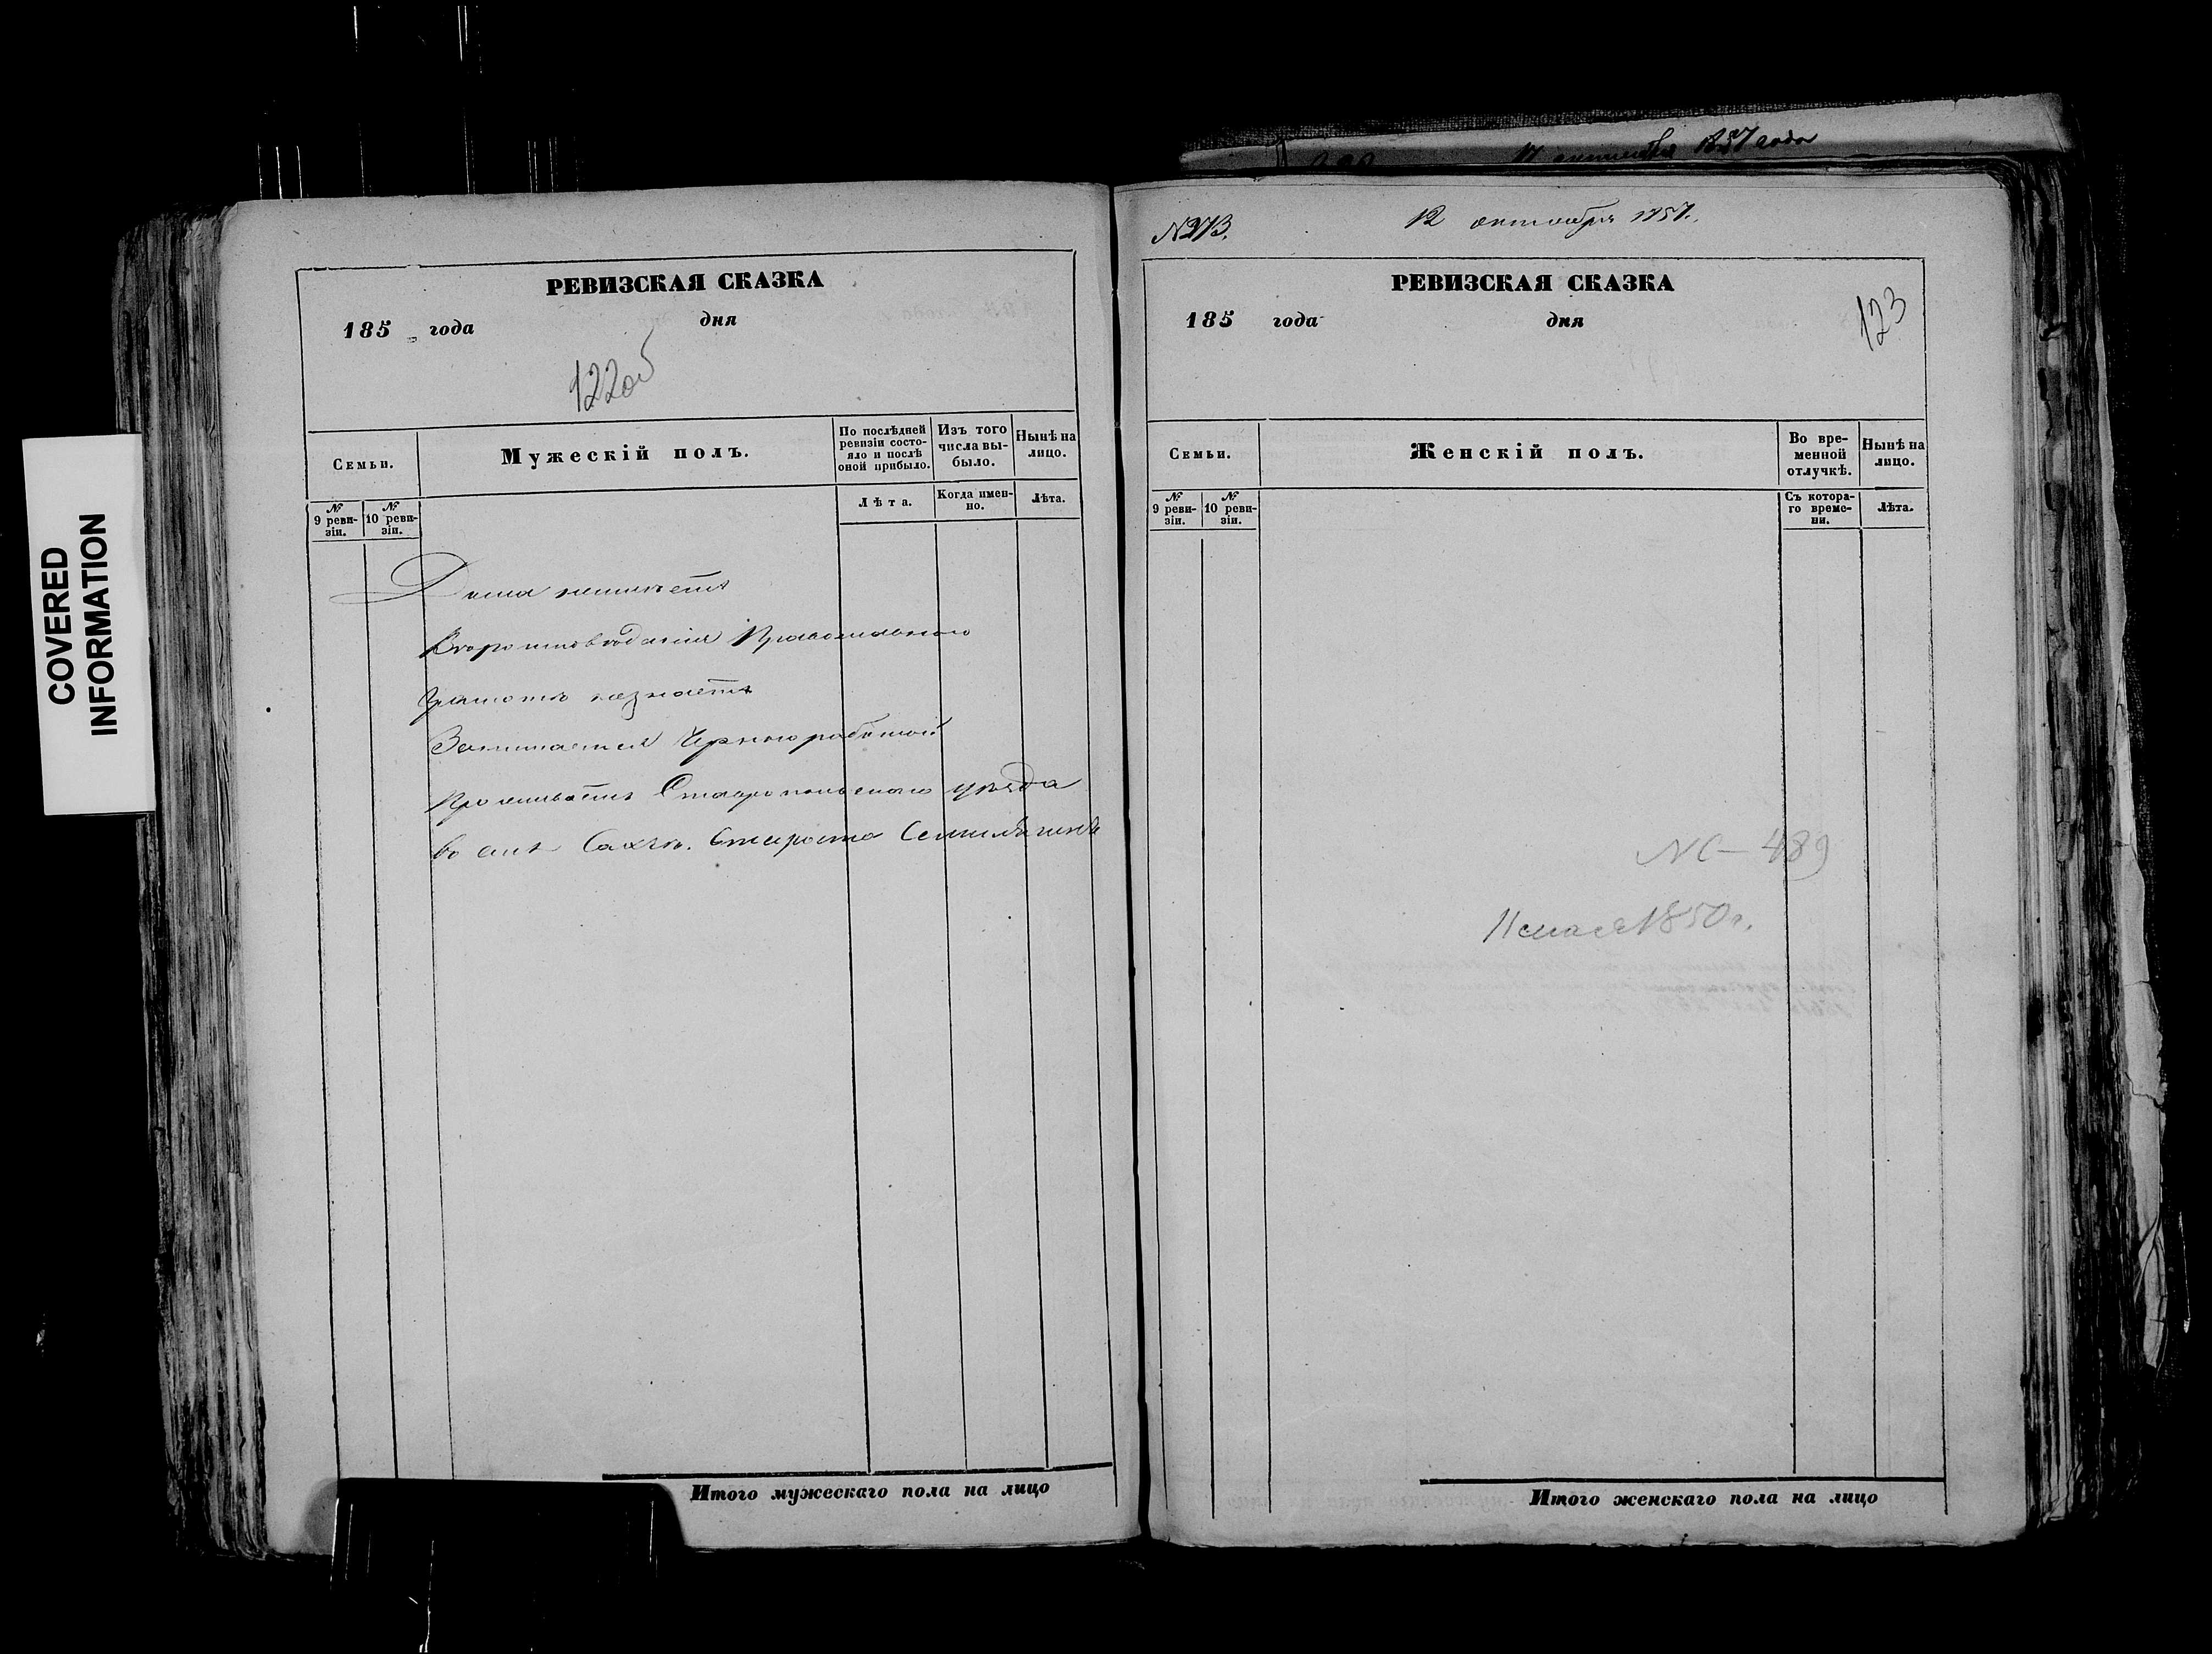 COVERED
INFORMATION
РЕВИЗСКАЯ СКАЗКА
185 года дня
122об
Семьи.
Мужескій полъ.
По послѣдней ревизіи состо-
яло и послѣ
оной прибыло.
Изъ того
числа вы-
было.
Нынѣ на
лицо.
№
9 реви-
зіи.
№
10 реви-
зіи.
Лѣта.
Когда имен-
но.
Лѣта.
Дома неимѣетъ
Вѣроисповѣданія Православнаго
Грамотѣ незнаетъ
Занимается Черною работой
Проживаетъ Ставропольскаго уѣзда
во
Итого мужескаго пола на лицо
12 октября 1857.
№213.
РЕВИЗСКАЯ СКАЗКА
185 года дня
123
Семьи.
Женскій полъ.
Во вре-
менной
отлучкѣ.
Нынѣ на
лицо.
№
9 реви-
зіи.
№
10 реви-
зіи.
Съ котора-
го време-
ни.
Лѣта.
489
11 мая 1850г.
Итого женскаго пола на лицо